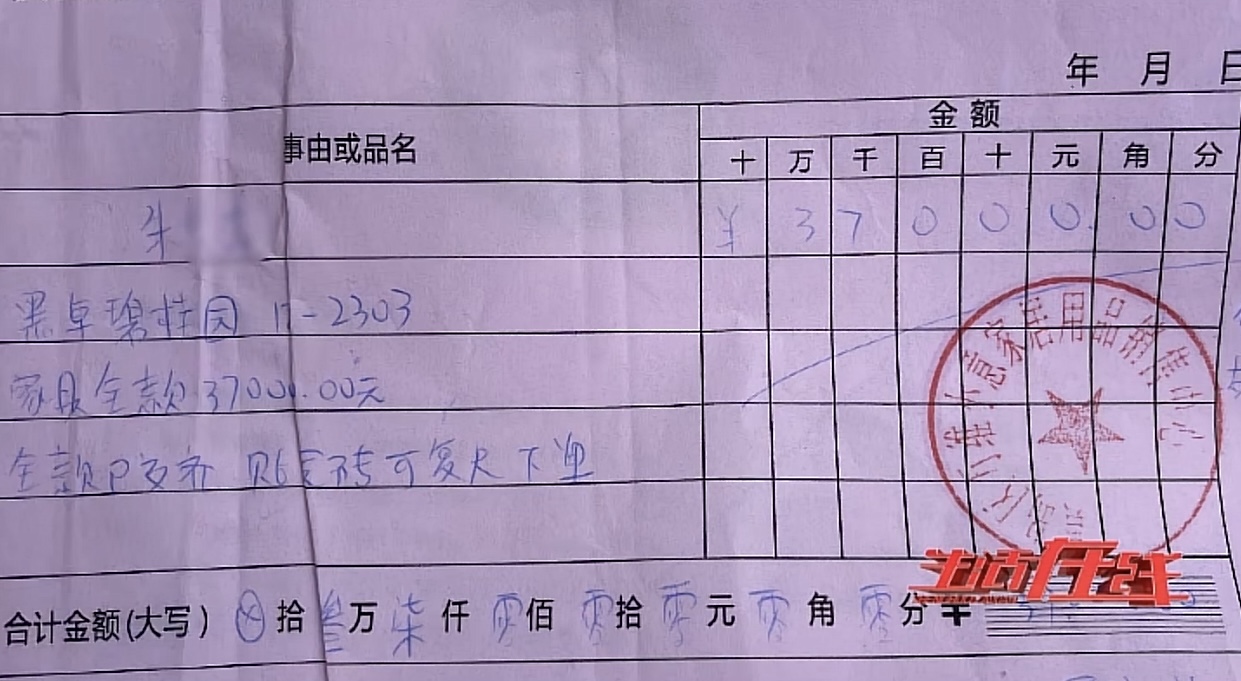 年 月 日
事由或品名 金额
十 万 千 百 十 元 角 分
朱 ¥ 3 7 0 0 0. 0 0
累卓碧桂园 17-2303
家具全款 37000.00元
全款已交齐 贴完砖可复尺下单
家居用品销售中心
合计金额(大写) ⊗ 拾 叁 万 柒 仟 零 佰 零 拾 零 元 零 角 零 分 ¥
在线